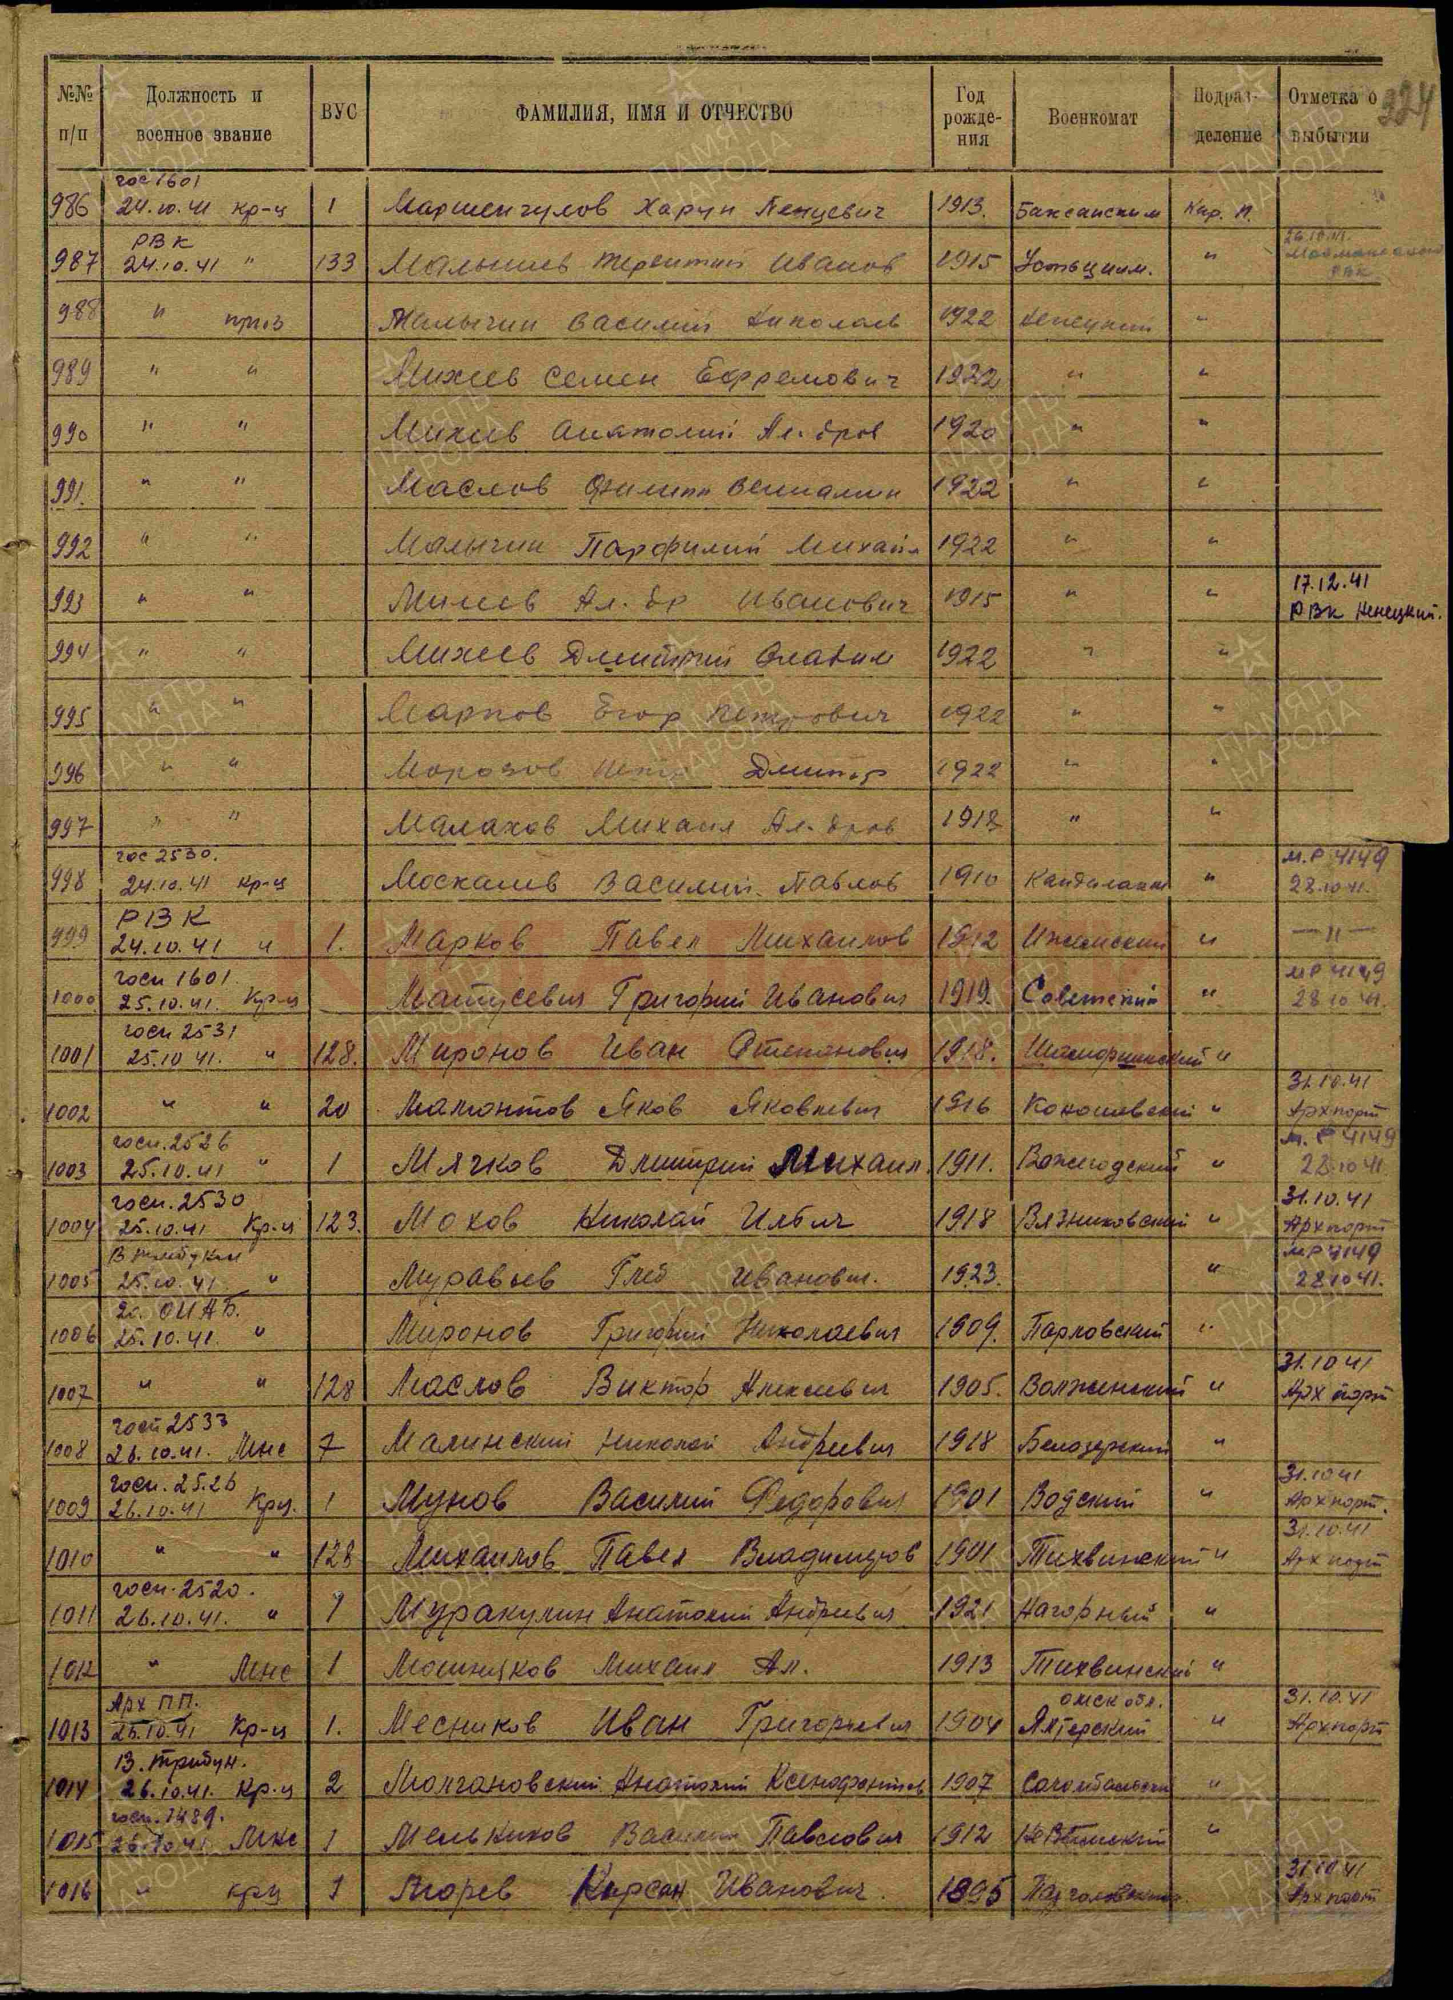 №№ п/п Должность и военное звание ВУС ФАМИЛИЯ, ИМЯ И ОТЧЕСТВО Год рождения Военкомат Подразделение Отметка о выбытии 324
гос 1601
986 24.10.41 кр-ц 1 Харун 1913. Баксанским Кар. П.
РВК 26.10.41.
987 24.10.41 " 133 Малышев Терентий Иванов 1915 Устьцилм. "
РВК
988 " приз Малычин Василий Николаев 1922 Ненецкий "
989 " " Михеев Семен Ефремович 1922 " "
990 " " Михеев Анатолий Ал-дров 1920 " "
991. " " Маслов Филипп Вениамин 1922 " "
992 " " Малычин Парфилий Михайл 1922 " "
17.12.41
993 " " Ал-др Иванович 1915 " " РВК Ненецкий.
994 " " Михеев Дмитрий 1922 " "
995 " " Марков Егор Петрович 1922 " "
996 " " Морозов Петр Дмитр 1922 " "
997 " " Малахов Михаил Ал-дров 1918 " "
гос 2530. м.р 4149
998 24.10.41 кр-ц Москалев Василий Павлов 1910 " 28.10.41.
РВК
999 24.10.41 " 1. Марков Павел Михаилов 1912 Ижемский " —"—
госп 1601 мр 4149
1000 25.10.41. Кр-ц Матусевич Григорий Иванович 1919. Советский " 28.10.41.
госп 2531
1001 25.10.41. " 128. Миронов Иван Степанович 1918. "
31.10.41
1002 " " 20 Мамонтов Яков Яковлевич 1916 Коношевский " Архпорт
госп. 2526 м.р 4149
1003 25.10.41 " 1 Мячков Дмитрий Михаил. 1911. Вожегодский " 28.10.41
госп. 2530 31.10.41
1004 25.10.41 Кр-ц 123. Мохов Николай Ильич 1918 Вязниковский " Архпорт
мр 4149
1005 25.10.41 " Муравьев Глеб Иванович. 1923. " 28.10.41.
20. ОИАБ.
1006 25.10.41. " Миронов Григорий Николаевич 1909. Парловский "
31.10.41
1007 " " 128 Маслов Виктор Алексеевич 1905. " Архпорт
госп 2533
1008 26.10.41. Мнс 7 Малинский Николай Андреевич 1918 Белозерский "
госп. 2526 31.10.41
1009 26.10.41 Крц. 1 Мунов Василий Федорович 1901 Водский " Архпорт.
31.10.41
1010 " " 128 Михайлов Павел Владимиров 1901 Тихвинский " Архпорт
госп. 2520.
1011 26.10.41. " 1 Муракулин Анатолий Андреевич 1921 Нагорный "
1012 " Мнс 1 Мошняков Михаил Ал. 1913 Тихвинский "
Арх ПП. омск обл. 31.10.41
1013 25.10.41 Кр-ц 1. Месников Иван Григорьевич 1904 " Архпорт
В. трибун.
1014 26.10.41. Кр-ц 2 Молчановский Анатолий Ксенофонтов 1907 "
госп. 1489.
1015 26.10.41 Мнс 1 Мельников Василий Павлович 1912 "
31.10.41
1016 " крц 1 Мюрев Кирсан Иванович. 1895 " Архпорт